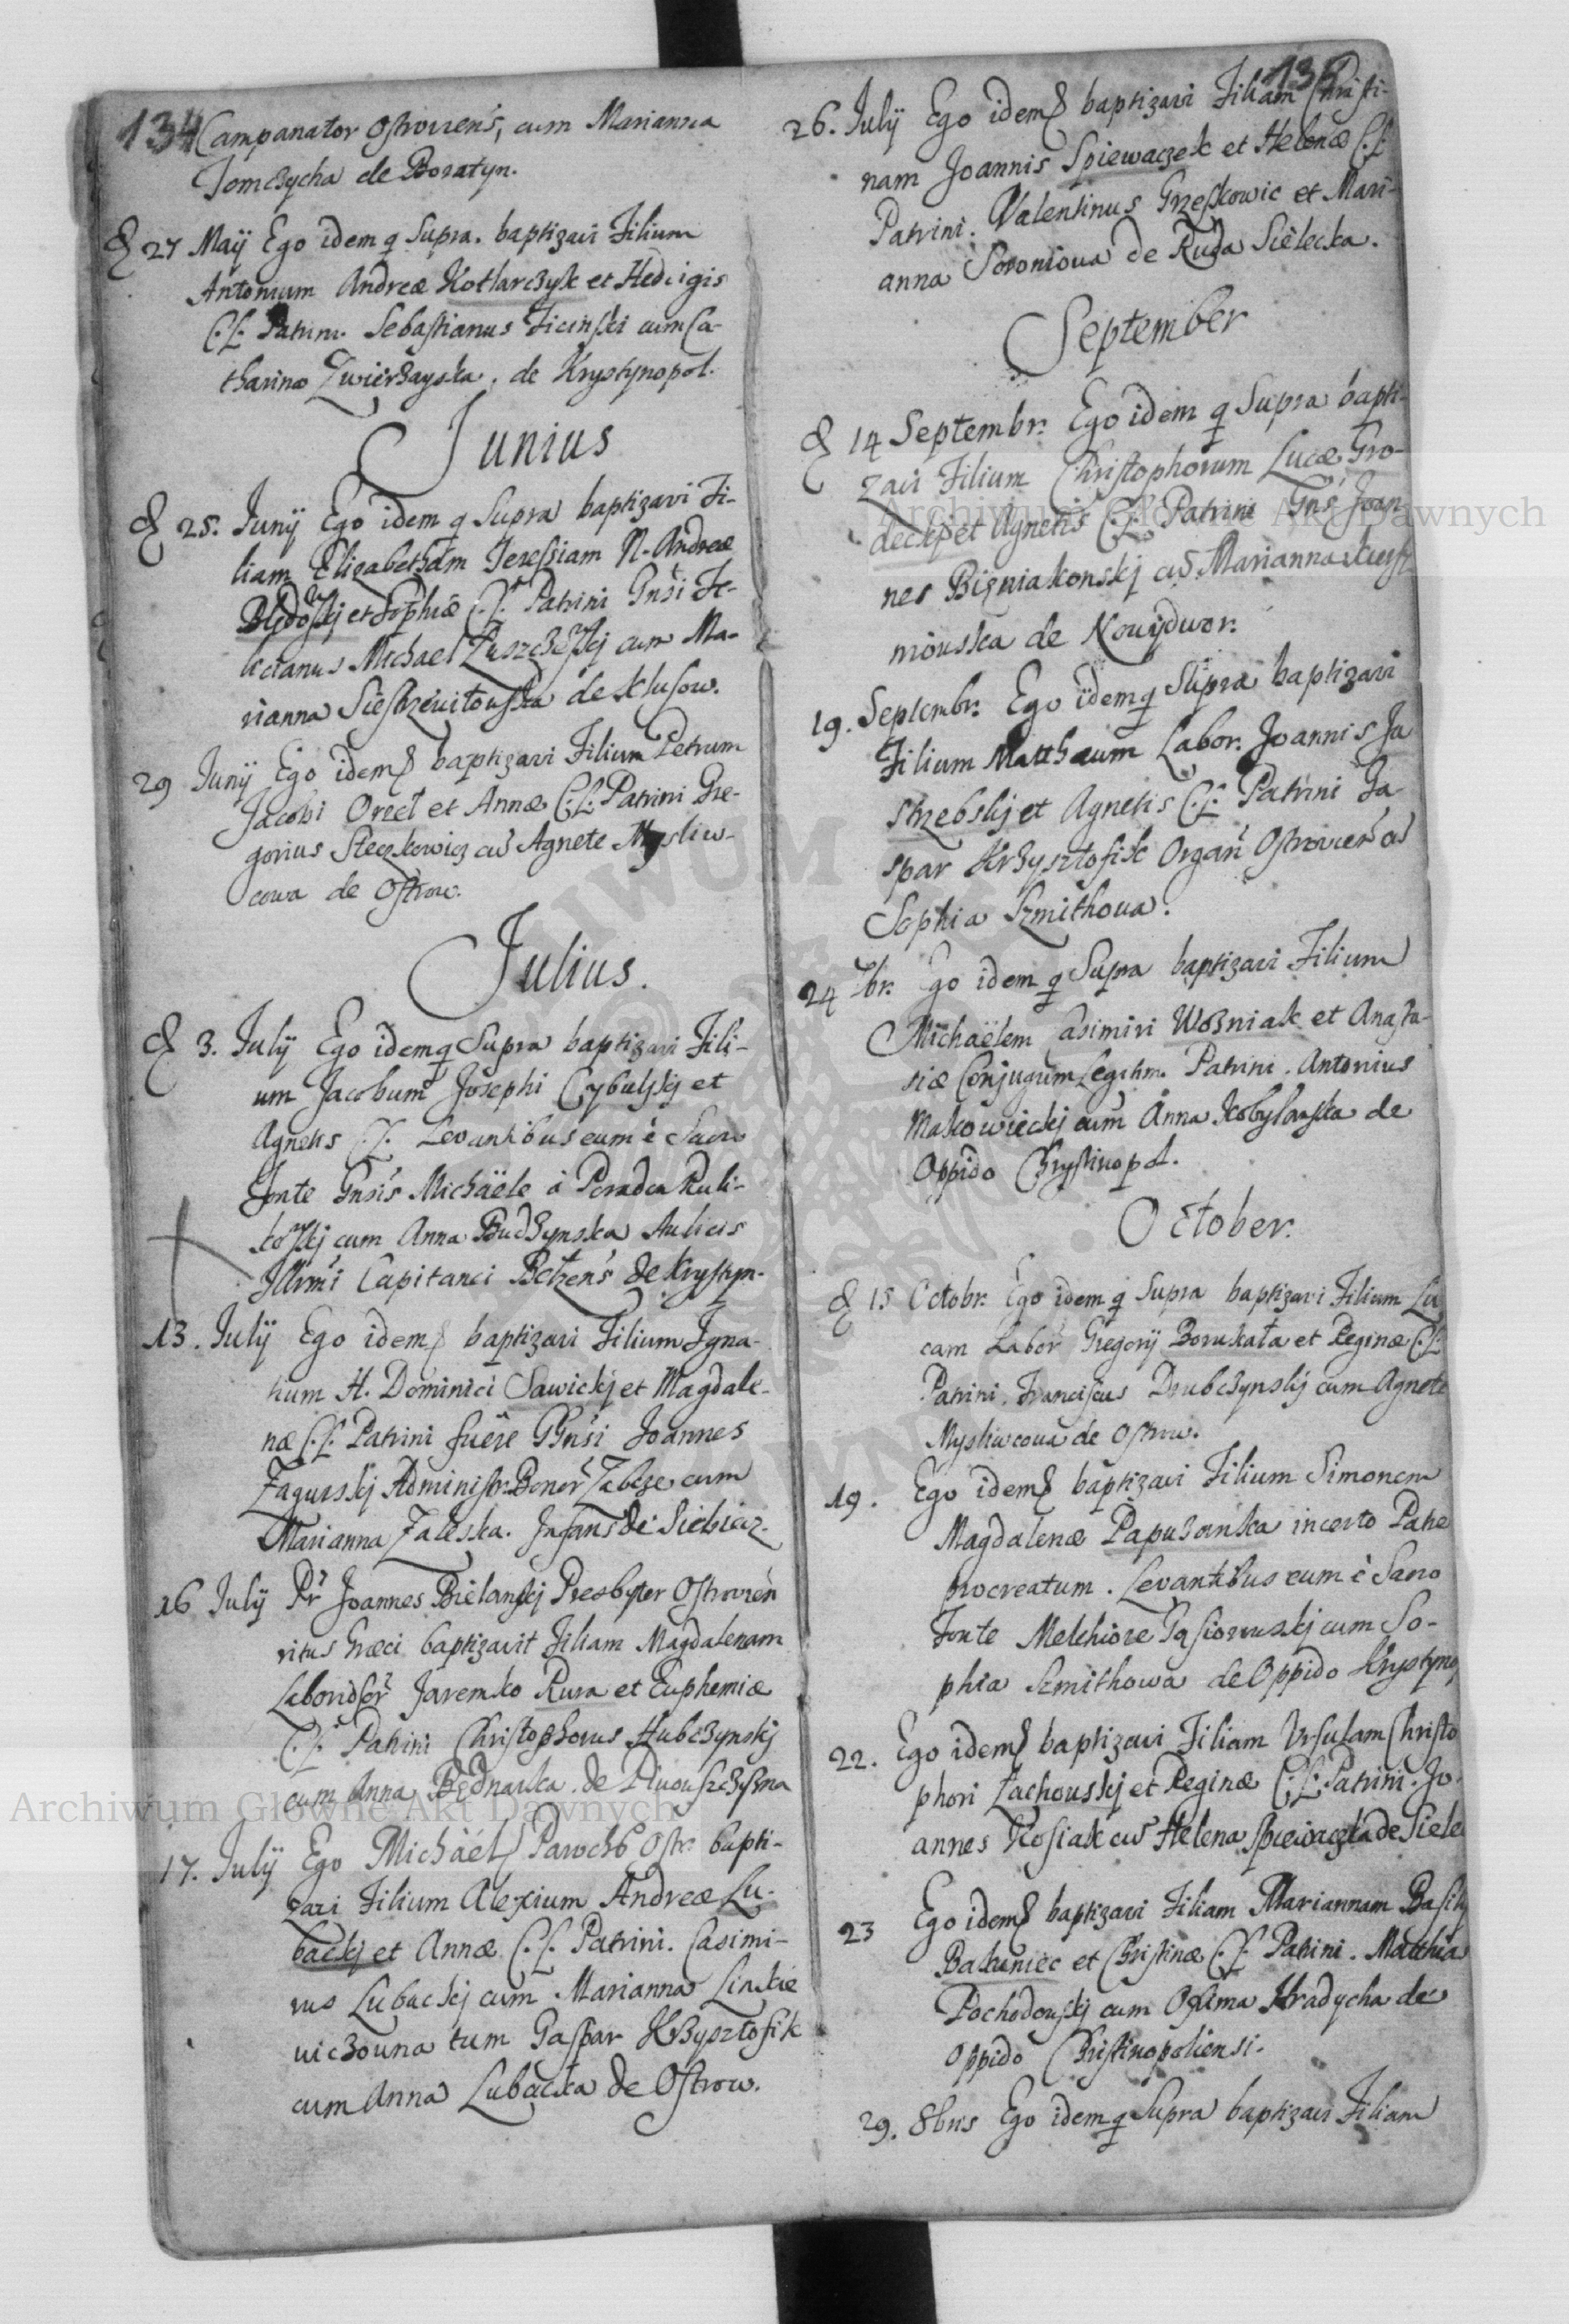 134
Campanator Ostroviens, cum Marianna
Tomczycha de Boratyn.
27 Maij Ego idem q Supra. baptizavi Filium
Antonium Andreæ Kotlarczyk et Hedvigis
C.L. Patrini. Sebastianus Ficinski cum Ca-
tharina Zwierzayska. de Krystynopol.
Junius
25. Junij Ego idem q Supra baptizavi Fi-
liam Elizabetham Teressiam N. Andreæ
et Sophiæ C.L. Patrini Gnsi Fe-
licianus Michael cum Ma-
rianna de Klusow.
29 Junij Ego idem baptizavi Filium Petrum
Jacobi Orect et Annæ C.L. Patrini Gre-
gorius Steczkowicz cu Agnete Mysliw-
cowa de Ostrow.
Julius.
3. Julij Ego idem q Supra baptizavi Fili-
um Jacobum Josephi Cybulskj et
Agnetis C.L. Levantibus eum è Sacro
Fonte Gnsis Michaële à Ruli-
kowskj cum Anna Budzynska Aulicis
Illrmi Capitanei Belzens de Krystyn-
13. Julij Ego idem baptizavi Filium Igna-
tium H. Dominici Sawickj et Magdale-
næ C.L. Patrini fuêre GGnsi Joannes
Zagurskj Administr. Bonor Zabcze cum
Marianna Zaleska. Infans de Siebiecz.
16 Julij Pr Joannes Bielanskj Presbyter Ostrovien
ritus Græci baptizavit Filiam Magdalenam
Laboriosor Jaremko Rura et Euphemiæ
C.L. Patrini Christophorus Hubczynskj
cum Anna Bednarka. de
17. Julij Ego Michaël Paroch Ostr. bapti-
zavi Filium Alexium Andreæ Lu-
backj et Annæ C.L. Patrini. Casimi-
rus Lubackj cum Marianna Linkie
wiczouna tum Gaspar Krzysztofik
cum Anna Lubacka de Ostrow.
135
26. Julij Ego idem baptizavi Filiam Christi-
nam Joannis Spiewaczek et Helenæ C.L.
Patrini. Valentinus Grzeskowic et Mari-
anna Soroniova de Ruda Sielecka.
September
14 Septembr. Ego idem q Supra bapti-
zavi Filium Christophorum Lucæ Gro-
deckj et Agnetis C.L. Patrini Gns Joan
nes Bizniakonskj cu Marianna
miouska de Nowydwor.
19. Septembr. Ego idem q Supra baptizavi
Filium Matthæum Labor. Joannis Ja
strzebskj et Agnetis C.L. Patrini Ga-
spar Krzysztofik Organ Ostrovien cu
Sophia Szmithova.
24 7br. Ego idem q Supra baptizavi Filium
Michaëlem Casimiri Wozniak et Anasta-
siæ Conjugum Legitim. Patrini. Antonius
Makowieckj cum Anna Kobylanska de
Oppido Chrystinopol.
October.
15 Octobr. Ego idem q Supra baptizavi Filium Lu
cam Labor Gregorij Borukała et Reginæ C.L.
Patrini. Franciscus Drubczynskj cum Agnete
Mysliwcova de Ostrow.
19. Ego idem baptizavi Filium Simonem
Magdalenæ Papuzanska incerto Patre
procreatum. Levantibus eum è Sacro
Fonte Melchiore Gąsiorouskj cum So-
phia Szmithowa de Oppido Krystynop
22. Ego idem baptizavi Filiam Ursulam Christo
phori Zachouskj et Reginæ C.L. Patrini. Jo
annes Kosiak cu Helena Spiewaczka de Siele
23 Ego idem baptizavi Filiam Mariannam Basilij
Bakuniec et Christinæ C.L. Patrini. Matthia
Pochodouskj cum Hradycha de
Oppido Christinopoliensi.
29. 8bris Ego idem q Supra baptizavi Filiam
Archiwum Główne Akt Dawnych
Archiwum Główne Akt Dawnych